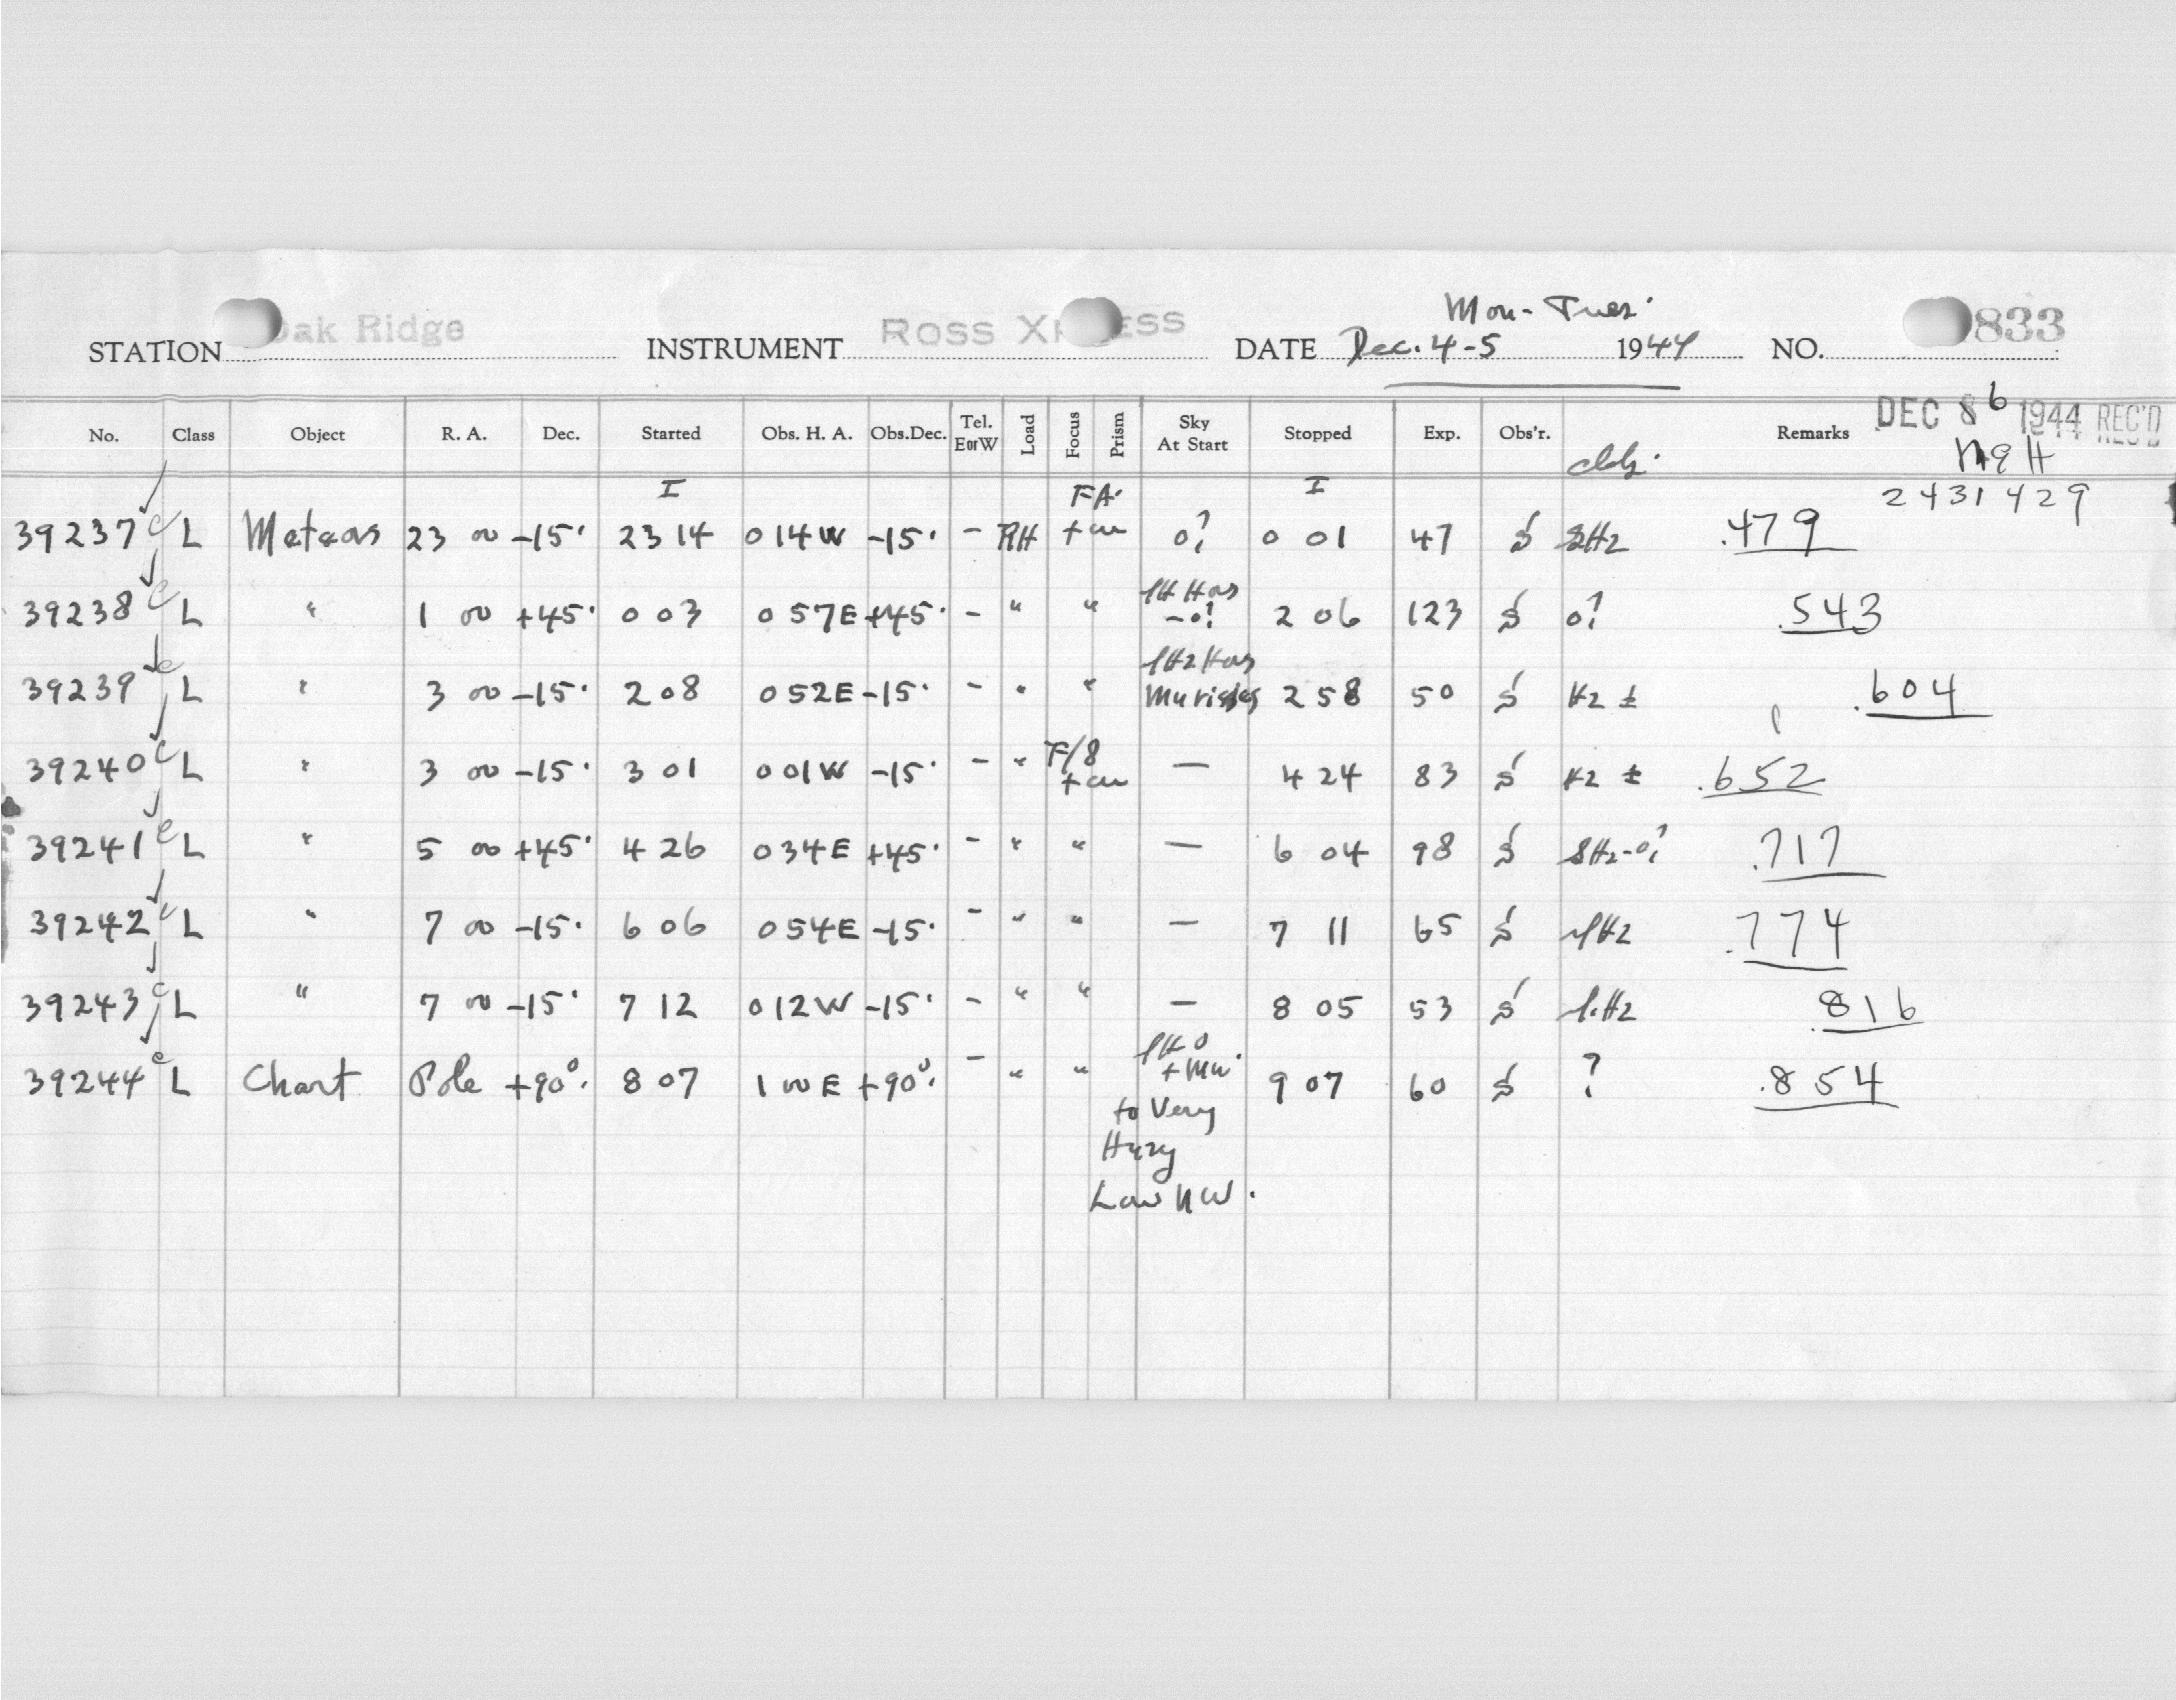 Mon-Tues.
STATION Oak Ridge INSTRUMENT ROSS X ESS DATE Dec. 4-5 1944 NO. 833
DEC 8 6 1944 REC'D
No. Class Object R. A. Dec. Started Obs. H. A. Obs.Dec. Tel. E or W Load Focus Prism Sky At Start Stopped Exp. Obs'r. Remarks
NqH
I FA. I 2431429
39237 c L Meteors 23 00 -15° 23 14 0 14W -15° - RH 0? 0 01 47 S SHz .479
39238 c L " 1 00 +45° 0 03 0 57E +45° - " " -0? 2 06 123 S 0? .543
39239 c L " 3 00 -15° 2 08 0 52E -15° - " " 2 58 50 S Hz ± .604
39240 c L " 3 00 -15° 3 01 0 01W -15° - " F/8 — 4 24 83 S Hz ± .652
39241 c L " 5 00 +45° 4 26 0 34E +45° - " " — 6 04 98 S SHz-0? .717
39242 c L " 7 00 -15° 6 06 0 54E -15° - " " — 7 11 65 S SHz .774
39243 c L " 7 00 -15° 7 12 0 12W -15° - " " — 8 05 53 S SHz .816
39244 c L Chart Pole +90° 8 07 1 00E +90° - " " 9 07 60 S ? .854
to Very
Hazy
Low NW.